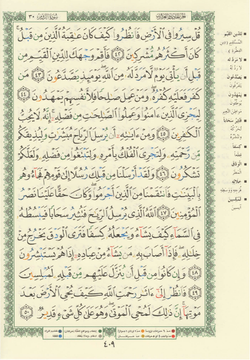 قُلْ سِيرُوا۟ فِى ٱلْأَرْضِ فَٱنظُرُوا۟ كَيْفَ كَانَ عَٰقِبَةُ ٱلَّذِينَ مِن قَبْلُ
كَانَ أَكْثَرُهُم مُّشْرِكِينَ ٤٢ فَأَقِمْ وَجْهَكَ لِلدِّينِ ٱلْقَيِّمِ مِن
قَبْلِ أَن يَأْتِىَ يَوْمٌ لَّا مَرَدَّ لَهُۥ مِنَ ٱللَّهِ يَوْمَئِذٍ يَصَّدَّعُونَ ٤٣ مَن
كَفَرَ فَعَلَيْهِ كُفْرُهُۥ وَمَنْ عَمِلَ صَٰلِحًا فَلِأَنفُسِهِمْ يَمْهَدُونَ ٤٤
لِيَجْزِىَ ٱلَّذِينَ ءَامَنُوا۟ وَعَمِلُوا۟ ٱلصَّٰلِحَٰتِ مِن فَضْلِهِۦٓ إِنَّهُۥ لَا يُحِبُّ
ٱلْكَٰفِرِينَ ٤٥ وَمِنْ ءَايَٰتِهِۦٓ أَن يُرْسِلَ ٱلرِّيَاحَ مُبَشِّرَٰتٍ وَلِيُذِيقَكُم
مِّن رَّحْمَتِهِۦ وَلِتَجْرِىَ ٱلْفُلْكُ بِأَمْرِهِۦ وَلِتَبْتَغُوا۟ مِن فَضْلِهِۦ وَلَعَلَّكُمْ
تَشْكُرُونَ ٤٦ وَلَقَدْ أَرْسَلْنَا مِن قَبْلِكَ رُسُلًا إِلَىٰ قَوْمِهِمْ فَجَآءُوهُم
بِٱلْبَيِّنَٰتِ فَٱنتَقَمْنَا مِنَ ٱلَّذِينَ أَجْرَمُوا۟ وَكَانَ حَقًّا عَلَيْنَا نَصْرُ
ٱلْمُؤْمِنِينَ ٤٧ ٱللَّهُ ٱلَّذِى يُرْسِلُ ٱلرِّيَٰحَ فَتُثِيرُ سَحَابًا فَيَبْسُطُهُۥ
فِى ٱلسَّمَآءِ كَيْفَ يَشَآءُ وَيَجْعَلُهُۥ كِسَفًا فَتَرَى ٱلْوَدْقَ يَخْرُجُ مِنْ
خِلَٰلِهِۦ فَإِذَآ أَصَابَ بِهِۦ مَن يَشَآءُ مِنْ عِبَادِهِۦٓ إِذَا هُمْ يَسْتَبْشِرُونَ
٤٨ وَإِن كَانُوا۟ مِن قَبْلِ أَن يُنَزَّلَ عَلَيْهِم مِّن قَبْلِهِۦ لَمُبْلِسِينَ
٤٩ فَٱنظُرْ إِلَىٰٓ ءَاثَٰرِ رَحْمَتِ ٱللَّهِ كَيْفَ يُحْىِ ٱلْأَرْضَ بَعْدَ
مَوْتِهَآ إِنَّ ذَٰلِكَ لَمُحْىِ ٱلْمَوْتَىٰ وَهُوَ عَلَىٰ كُلِّ شَىْءٍ قَدِيرٌ ٥٠
٤٠٩